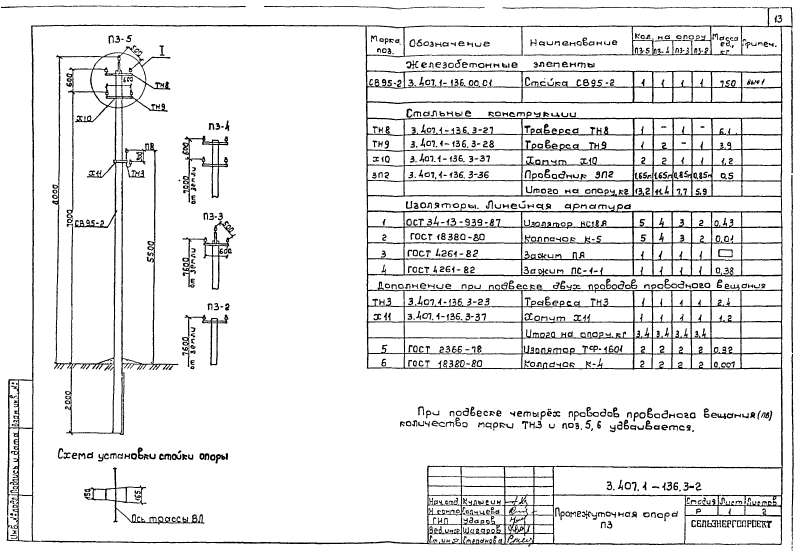 13
ПЗ-5
I
500
600
600
ТН8
ТН9
Х10
ПВ
Х11
ТН3
8000
7000
СВ95-2
5500
2000
ПЗ-4
600
7000
от земли
ПЗ-3
500
600
7600
от земли
ПЗ-2
7600
от земли
Схема установки стойки опоры
150
165
Ось трассы ВЛ
Марка поз. Обозначение Наименование Кол. на опору Масса ед., кг Примеч.
ПЗ-5 ПЗ-4 ПЗ-3 ПЗ-2
Железобетонные элементы
СВ95-2 3.407.1-136.00.01 Стойка СВ95-2 1 1 1 1 750
Стальные конструкции
ТН8 3.407.1-136.3-27 Траверса ТН8 1 - 1 - 6.1
ТН9 3.407.1-136.3-28 Траверса ТН9 1 2 - 1 3.9
Х10 3.407.1-136.3-37 Хомут Х10 2 2 1 1 1.2
ЗП2 3.407.1-136.3-36 Проводник ЗП2 1,65м 1,65м 0,85м 0,85м 0,5
Итого на опору, кг 13,2 11,4 7,7 5,9
Изоляторы. Линейная арматура
1 ОСТ 34-13-939-87 Изолятор НС18А 5 4 3 2 0.43
2 ГОСТ 18380-80 Колпачок К-5 5 4 3 2 0.01
3 ГОСТ 4261-82 Зажим ПА 1 1 1 1
4 ГОСТ 4261-82 Зажим ПС-1-1 1 1 1 1 0,38
Дополнение при подвеске двух проводов проводного вещания
ТН3 3.407.1-136.3-23 Траверса ТН3 1 1 1 1 2.4
Х11 3.407.1-136.3-37 Хомут Х11 1 1 1 1 1.2
Итого на опору, кг 3,4 3,4 3,4 3,4
5 ГОСТ 2366-78 Изолятор ТФ-1601 2 2 2 2 0.32
6 ГОСТ 18380-80 Колпачок К-4 2 2 2 2 0.007
При подвеске четырёх проводов проводного вещания (ПВ)
количество марки ТН3 и поз. 5, 6 удваивается.
3.407.1-136.3-2
Нач.отд. Кулыгин
Н.контр. Солнцева
ГИП Ударов
Вед.инж. Шагаров
Ст.инж. Степанова
Промежуточная опора
ПЗ
Стадия Лист Листов
Р 1 2
СЕЛЬЭНЕРГОПРОЕКТ
Инв.№подл. Подпись и дата Взам.инв.№